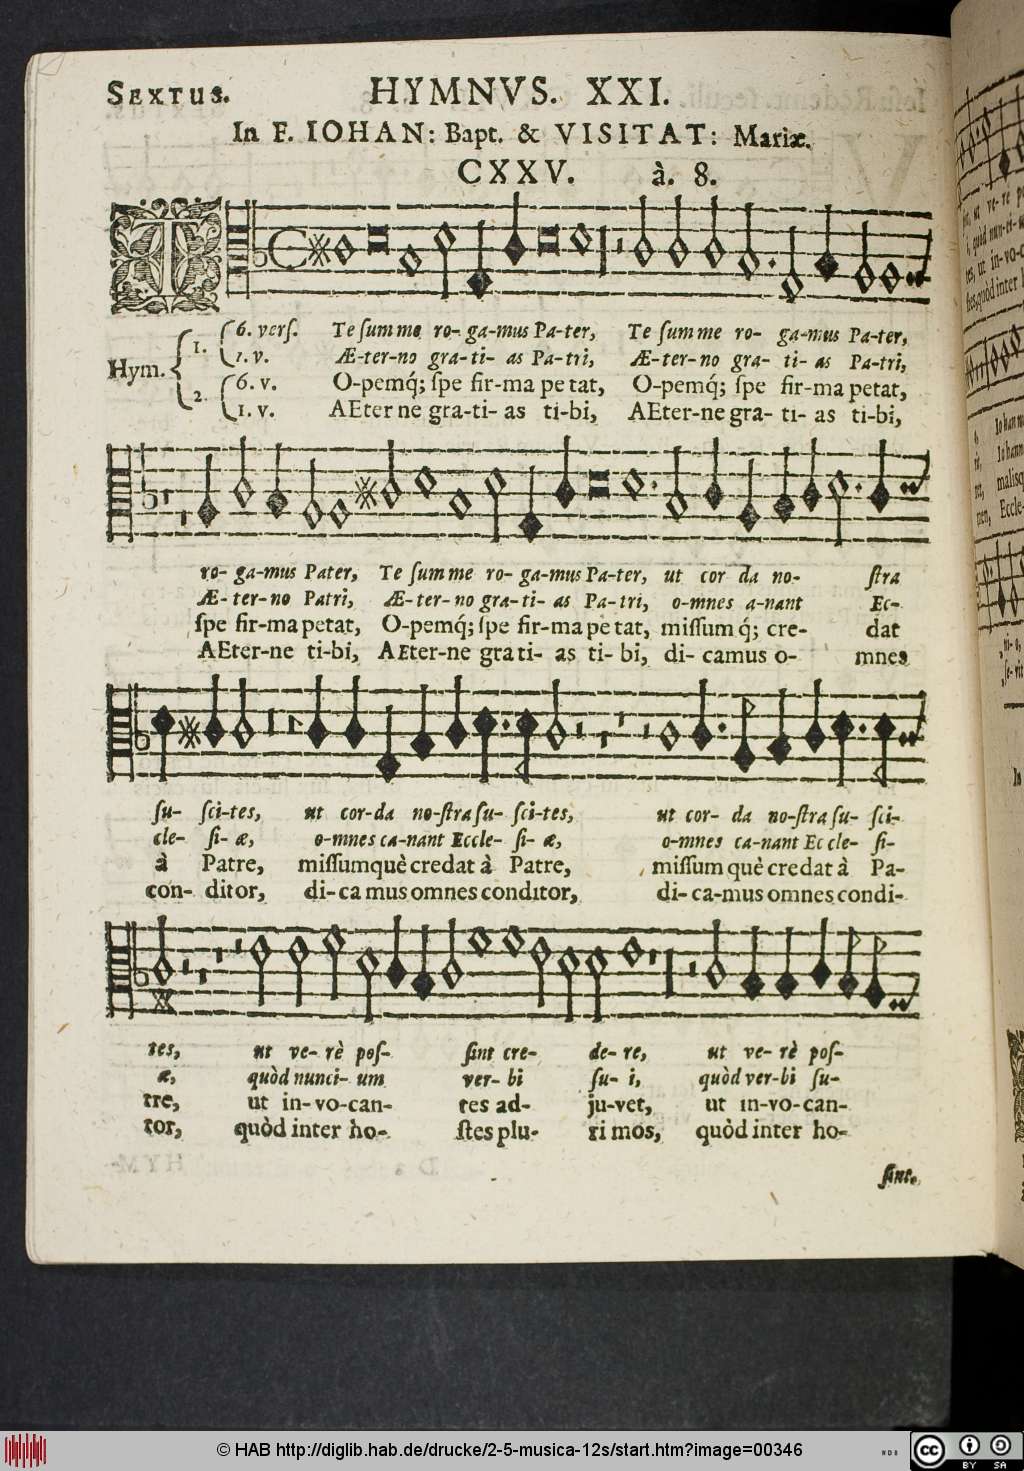 SEXTUS. HYMNVS. XXI.
In F. IOHAN: Bapt. & VISITAT: Mariæ.
CXXV. à. 8.
T
Hym. 1. 6. verſ. Te ſum me ro- ga-mus Pa-ter, Te ſum me ro- ga-mus Pa-ter,
1. v. Æ-ter-no gra-ti- as Pa-tri, Æ-ter-no gra- ti- as Pa-tri,
2. 6. v. O-pemq́; ſpe fir-ma pe tat, O-pemq́; ſpe fir-ma petat,
1. v. AEter ne gra-ti- as ti-bi, AEter-ne gra- ti- as ti-bi,
ro- ga-mus Pater, Te ſum me ro- ga-mus Pa-ter, ut cor da no- ſtra
Æ-ter-no Patri, Æ-ter-no gra-ti- as Pa-tri, o-mnes a-nant Ec-
ſpe fir-ma petat, O-pemq́; ſpe fir-ma pe tat, miſſum q́; cre- dat
AEter-ne ti-bi, AEter-ne gra ti- as ti- bi, di- camus o- mnes
ſu- ſci-tes, ut cor-da no-ſtra ſu- ſci-tes, ut cor- da no-ſtra ſu- ſci-
cle- ſi- æ, o-mnes ca-nant Eccle- ſi- æ, o-mnes ca-nant Ec cle- ſi-
à Patre, miſſumquè credat à Patre, miſſum què credat à Pa-
con- ditor, di-ca mus omnes conditor, di- ca-mus omnes condi-
tes, ut ve- rè poſ- ſint cre- de- re, ut ve- rè poſ-
æ, quòd nunci- um ver- bi ſu- i, quòd ver-bi ſu-
tre, ut in-vo-can- tes ad- ju-vet, ut in-vo-can-
tor, quòd inter ho- ſtes plu- ri mos, quòd inter ho-
ſint.
© HAB http://diglib.hab.de/drucke/2-5-musica-12s/start.htm?image=00346
cc BY SA